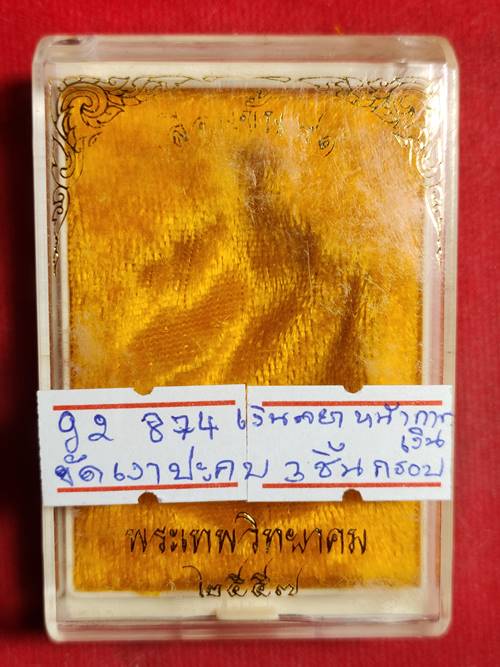 92 874 เงินลงยา หน้ากาก
เงิน
ขัดเงาปะคบ 3 ชิ้น กรอบ
พระเทพวิทยาคม
๒๕๕๗